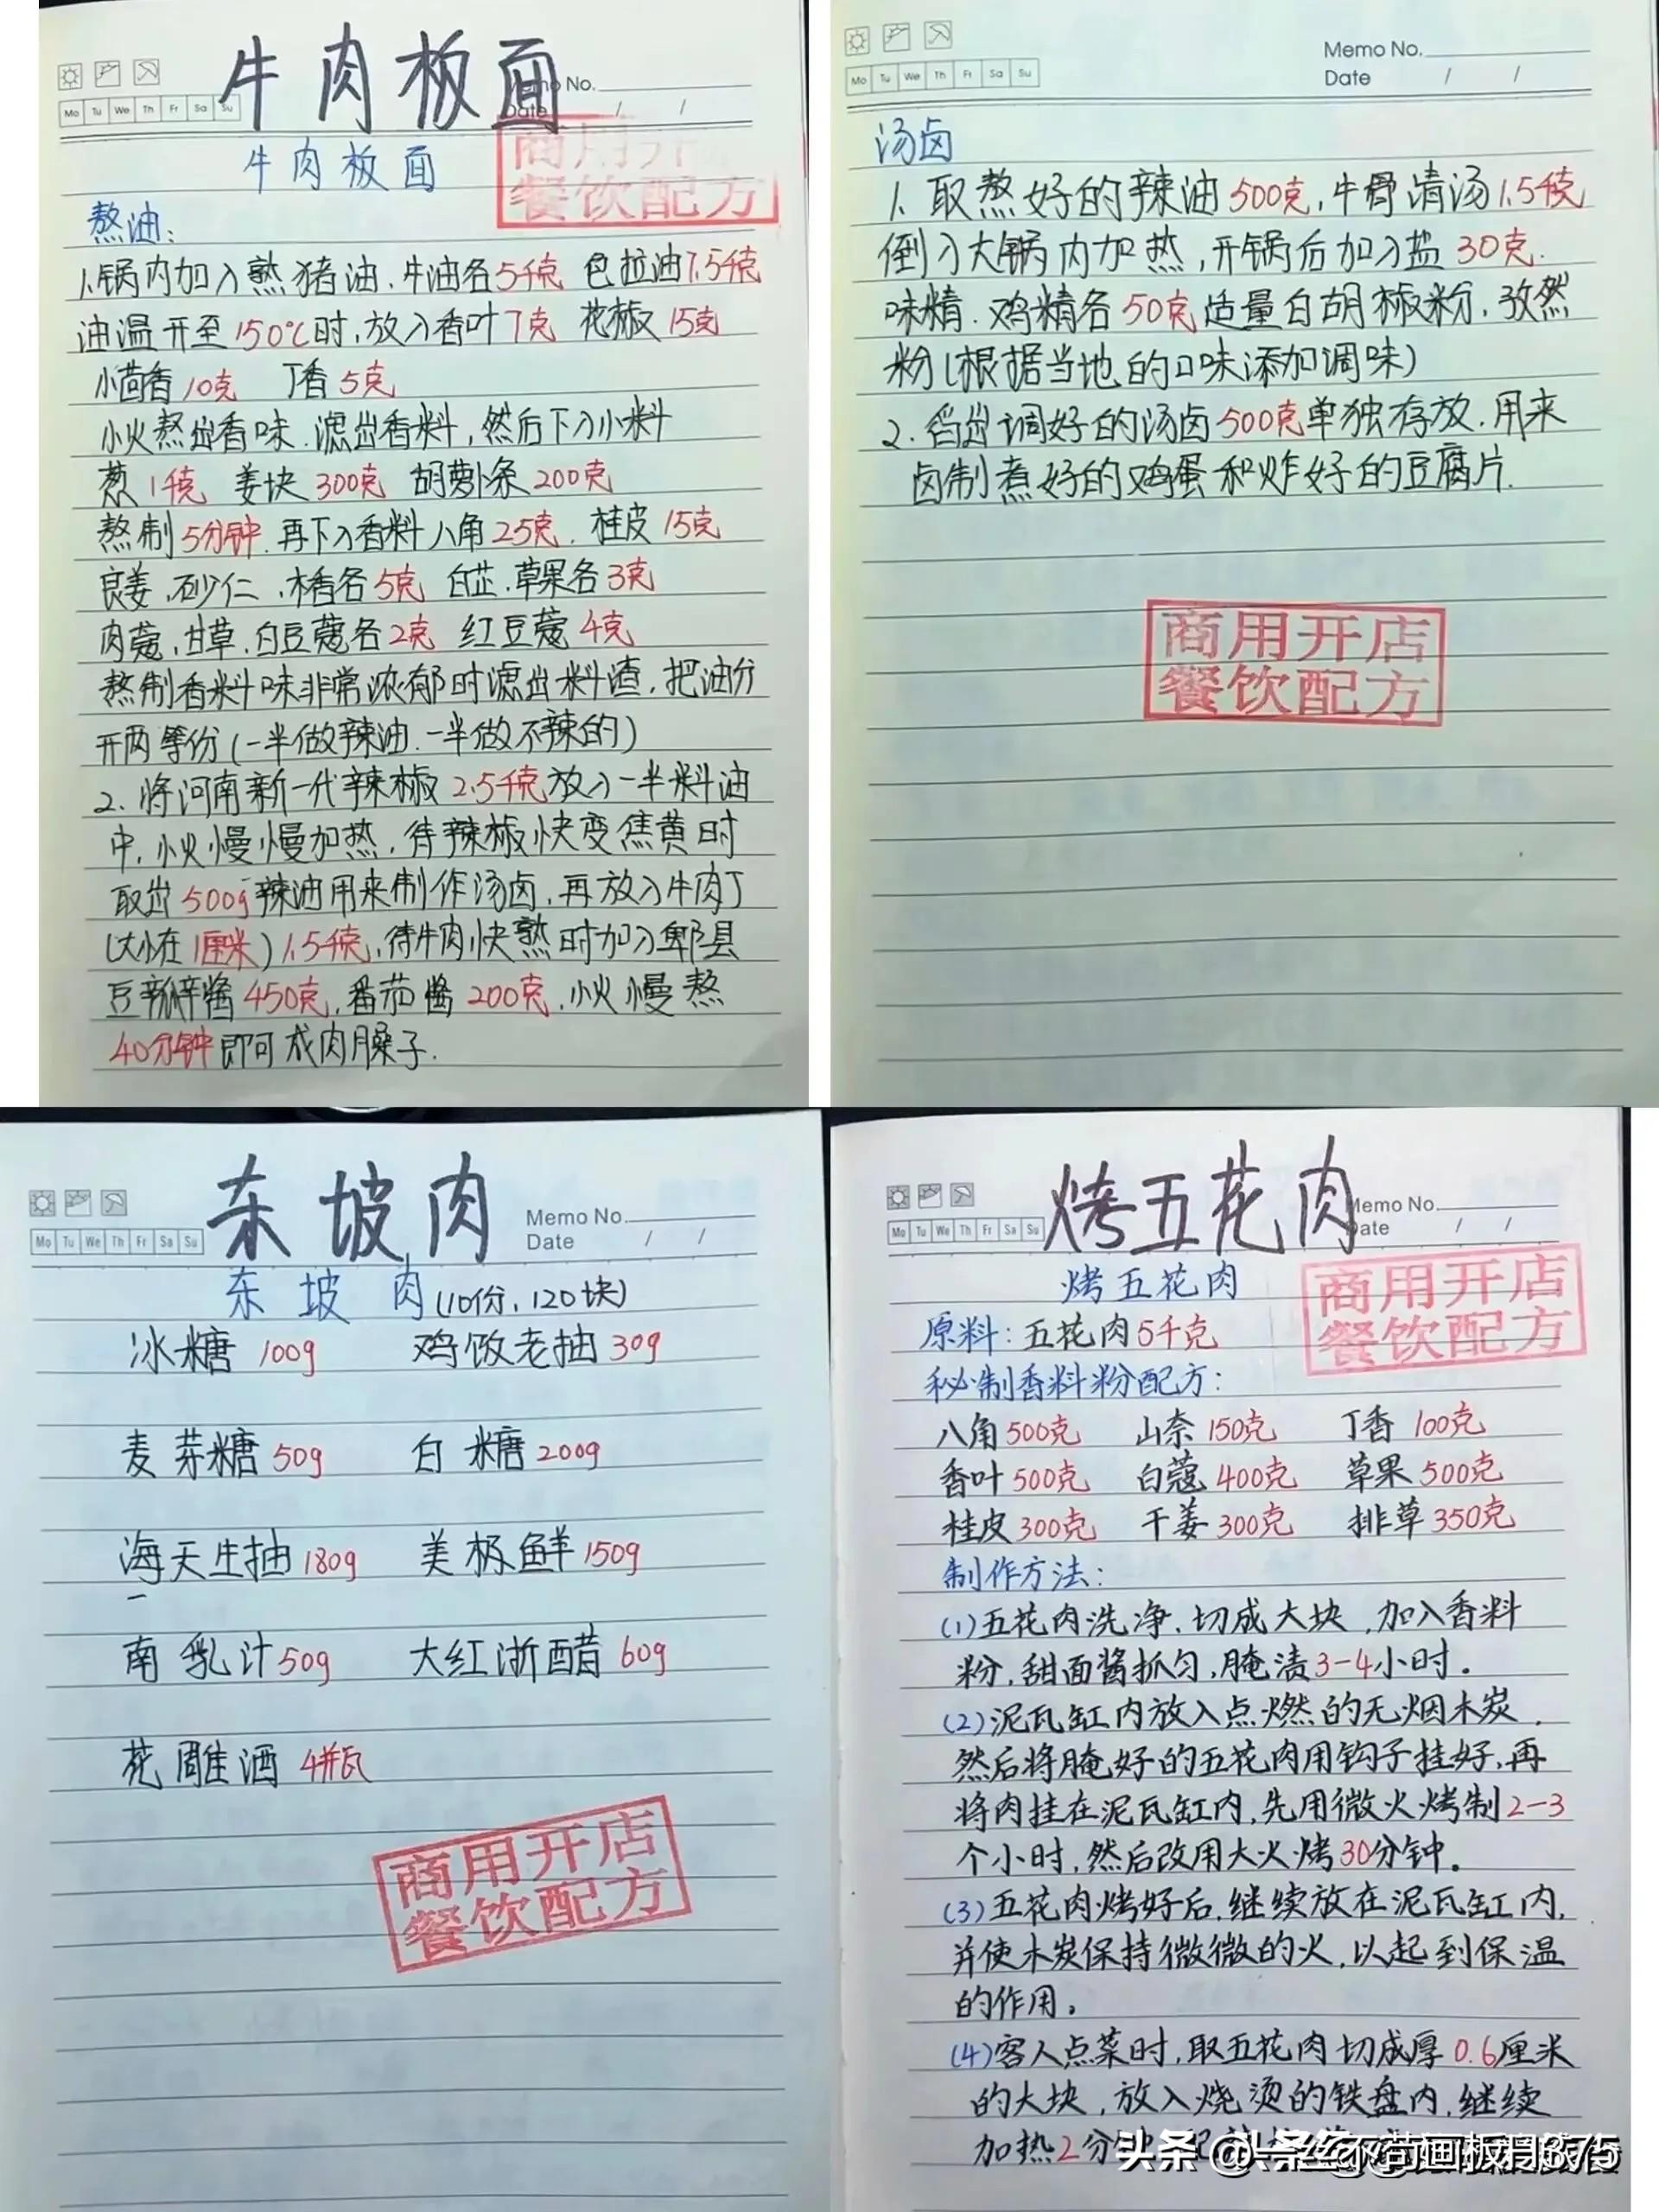 牛肉板面
Memo No.
Date / /
Mo Tu We Th Fr Sa Su
牛肉板面
商用开
餐饮配方
熬油:
1.锅内加入熟猪油.牛油各5千克 色拉油7.5千克
油温开至150℃时,放入香叶7克 花椒15克
小茴香10克 丁香5克
小火熬出香味.滤出香料,然后下入小料
葱1千克 姜块300克 胡萝卜条200克
熬制5分钟.再下入香料八角25克.桂皮15克
良姜.砂仁.木香各5克 白芷.草果各3克
肉蔻.甘草.白豆蔻各2克 红豆蔻4克
熬制香料味非常浓郁时滤出料渣.把油分
开两等份(一半做辣油.一半做不辣的)
2.将河南新一代辣椒2.5千克放入一半料油
中,小火慢慢加热,待辣椒快变焦黄时
取出500g辣油用来制作汤卤,再放入牛肉丁
(大小在1厘米)1.5千克,待牛肉快熟时加入郫县
豆瓣酱450克,番茄酱200克.小火慢熬
40分钟即可成肉臊子.
Memo No.
Date / /
Mo Tu We Th Fr Sa Su
汤卤
1.取熬好的辣油500克,牛骨清汤1.5千克
倒入大锅内加热,开锅后加入盐30克.
味精.鸡精各50克适量白胡椒粉.孜然
粉(根据当地的口味添加调味)
2.舀出调好的汤卤500克单独存放.用来
卤制煮好的鸡蛋和炸好的豆腐片.
商用开店
餐饮配方
东坡肉
Memo No.
Date / /
Mo Tu We Th Fr Sa Su
东坡肉(10份.120块)
冰糖100g 鸡饭老抽30g
麦芽糖50g 白糖200g
海天生抽180g 美极鲜150g
南乳汁50g 大红浙醋60g
花雕酒4瓶
商用开店
餐饮配方
烤五花肉
Memo No.
Date / /
Mo Tu We Th Fr Sa Su
烤五花肉
商用开店
餐饮配方
原料:五花肉5千克
秘制香料粉配方:
八角500克 山奈150克 丁香100克
香叶500克 白蔻400克 草果500克
桂皮300克 干姜300克 排草350克
制作方法:
(1)五花肉洗净.切成大块,加入香料
粉.甜面酱抓匀,腌渍3-4小时。
(2)泥瓦缸内放入点燃的无烟木炭.
然后将腌好的五花肉用钩子挂好,再
将肉挂在泥瓦缸内,先用微火烤制2-3
个小时,然后改用大火烤30分钟。
(3)五花肉烤好后,继续放在泥瓦缸内,
并使木炭保持微微的火,以起到保温
的作用。
(4)客人点菜时,取五花肉切成厚0.6厘米
的大块,放入烧烫的铁盘内,继续
加热2分钟
头条@